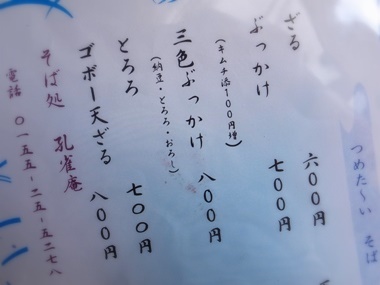 つめた〜い そば
ざる 六〇〇円
ぶっかけ 七〇〇円
(キムチ添100円増)
三色ぶっかけ 八〇〇円
(納豆・とろろ・おろし)
とろろ 七〇〇円
ゴボー天ざる 八〇〇円
そば処 孔雀庵
電話 〇一五五-二五-五二七八